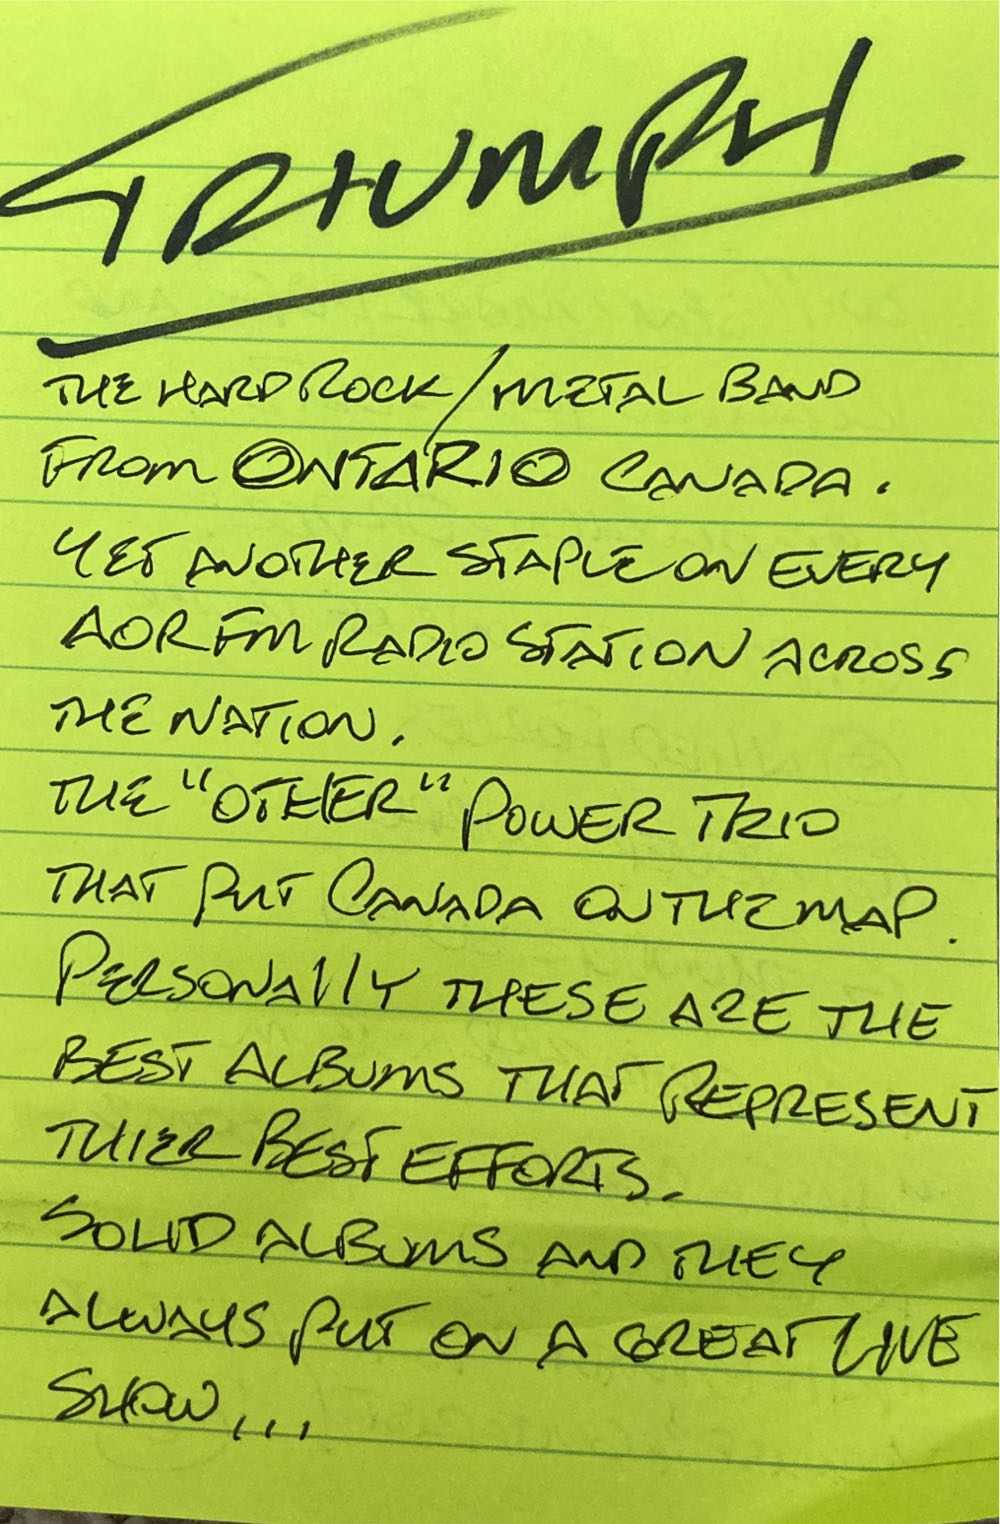 TRIUMPH
THE HARD ROCK/METAL BAND
FROM ONTARIO CANADA.
YET ANOTHER STAPLE ON EVERY
AOR FM RADIO STATION ACROSS
THE NATION.
THE "OTHER" POWER TRIO
THAT PUT CANADA ON THE MAP.
PERSONALLY THESE ARE THE
BEST ALBUMS THAT REPRESENT
THIER BEST EFFORTS.
SOLID ALBUMS AND THEY
ALWAYS PUT ON A GREAT LIVE
SHOW...